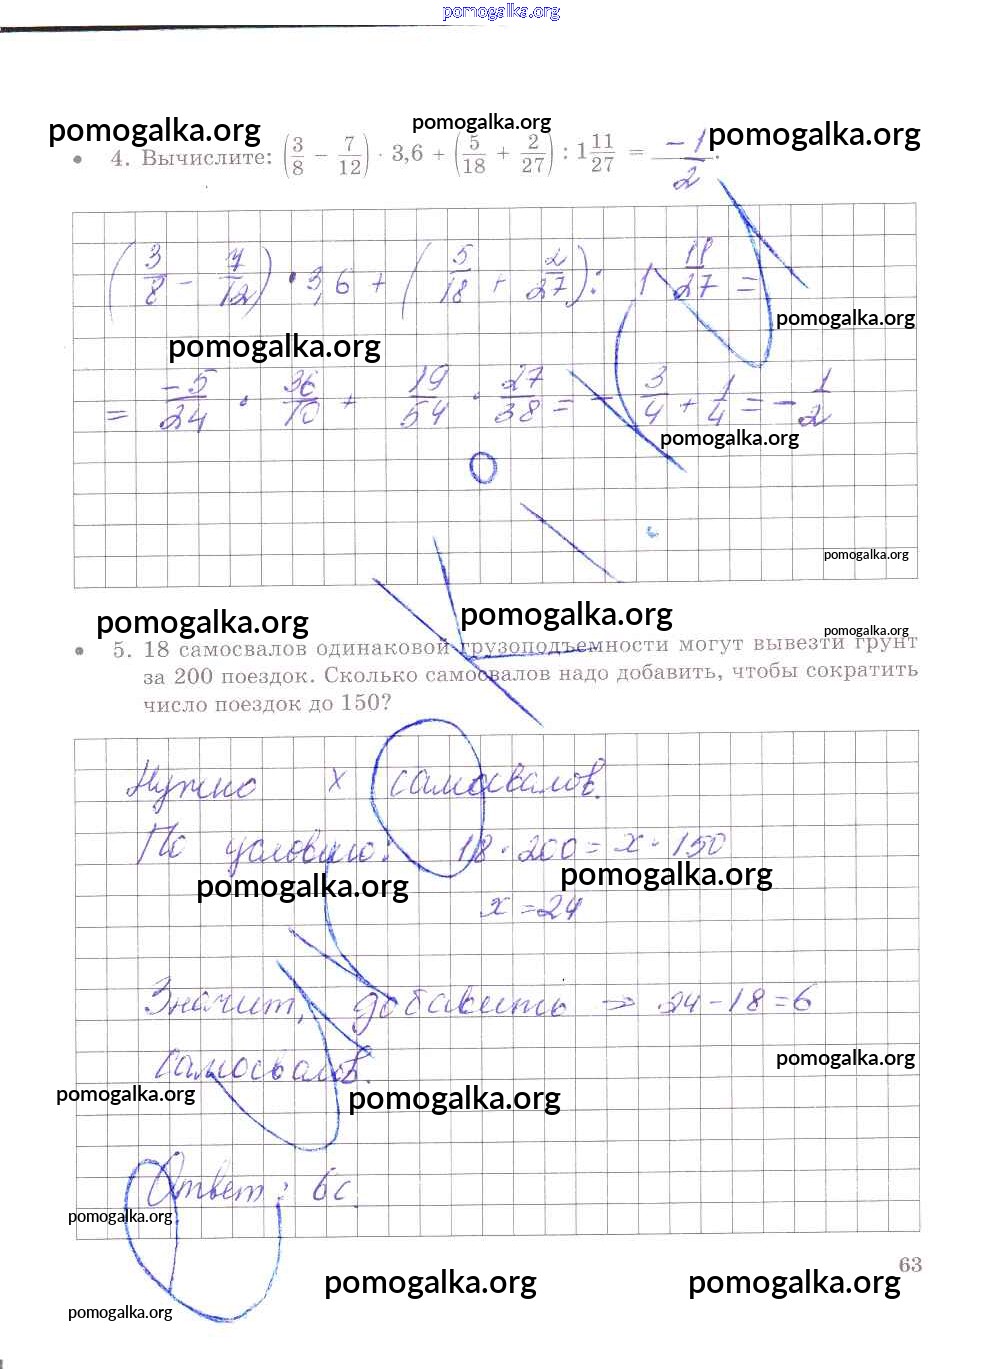 pomogalka.org
pomogalka.org pomogalka.org pomogalka.org
• 4. Вычислите: (3/8 − 7/12) · 3,6 + (5/18 + 2/27) : 1 11/27 = −1/2.
(3/8 − 7/12) · 3,6 + (5/18 + 2/27) : 1 11/27 =
pomogalka.org
pomogalka.org
= −5/24 · 36/10 + 19/54 · 27/38 = − 3/4 + 1/4 = − 1/2
pomogalka.org
pomogalka.org
pomogalka.org pomogalka.org pomogalka.org
• 5. 18 самосвалов одинаковой грузоподъемности могут вывезти грунт
за 200 поездок. Сколько самосвалов надо добавить, чтобы сократить
число поездок до 150?
Нужно x самосвалов.
По условию: 18 · 200 = x · 150
pomogalka.org pomogalka.org
x = 24
Значит, добавить => 24 − 18 = 6
самосвалов.
pomogalka.org
pomogalka.org pomogalka.org
Ответ: 6 с.
pomogalka.org
63
pomogalka.org pomogalka.org
pomogalka.org